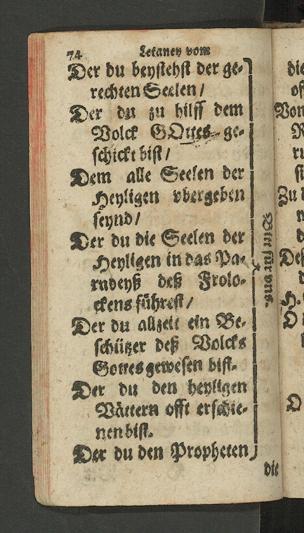 74 Letaney vom
Der du beystehst der ge-
rechten Seelen /
Der du zu hilff dem
Volck GOttes ge-
schickt bist /
Dem alle Seelen der
Heyligen vbergeben
seynd /
Der du die Seelen der
Heyligen in das Pa-
radeyß deß Frolo-
ckens führest /
Der du allzeit ein Be-
schützer deß Volcks
Gottes gewesen bist.
Der du den heyligen
Vättern offt erschie-
nen bist.
Der du den Propheten
die
Bitt für vns.